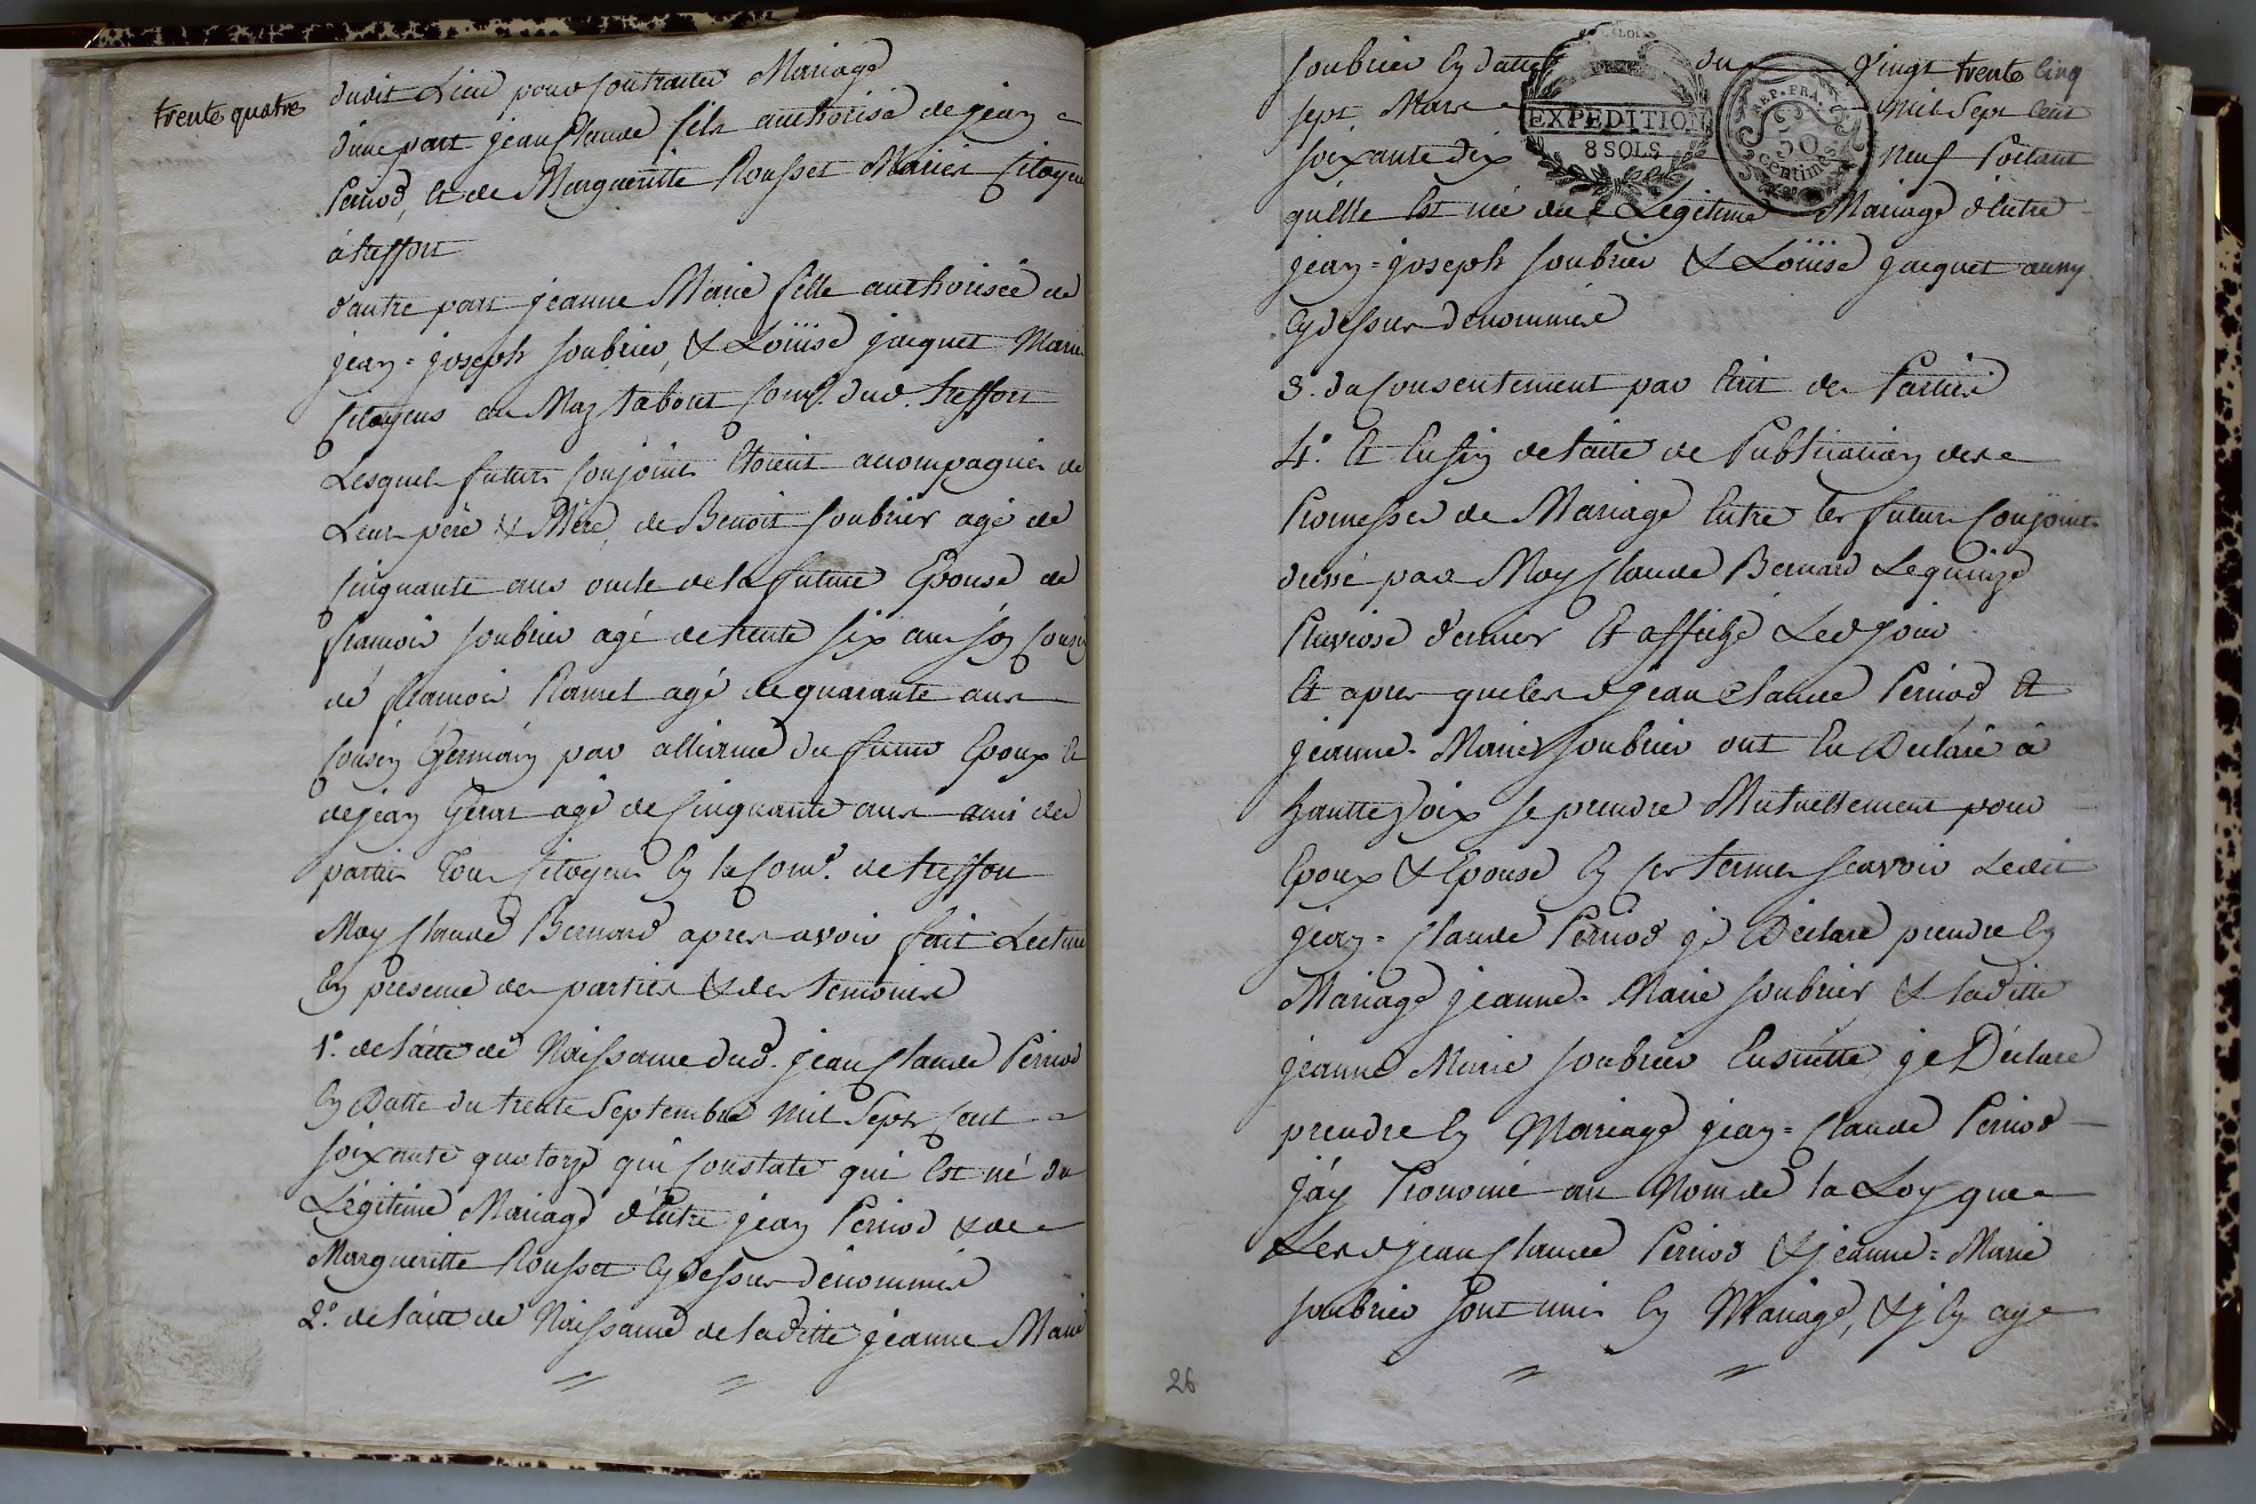 trente quatre
dudit Lieu pour Contracter Mariage
d'une part jean Claude fils authorisé de jean
Perriod, et de Margueritte Rousset Mariés Citoyens
à treffort
d'autre part jeanne Marie fille authorisée de
jean = joseph soubrier, & Loüise jacquet Mariés
Citoyens au Maz tabout Com.e dud. treffort
Lesquels futurs Conjoints Etoient acompagnés de
Leur père & Mère, de Benoit soubrier agé de
Cinquante ans oncle de la future Epouse de
francois soubrier agé de trente six ans son Cousin
de francois Ramel agé de quarante ans
Cousin Germain par alliance du futur Epoux et
de jean agé de Cinquante ans ami des
parties tous Citoyens En la Com.e de treffort
Moy Claude Bernard apres avoir fait Lecture
En presence des parties & des temoins
1°. de l'acte de Naissance dud. jean Claude Perriod
En Datte du trente Septembre Mil Sept Cent
soixante quatorze qui Constate qui Est né du
Légitime Mariage d'Entre jean Perriod & de
Margueritte Rousset Cy dessus dénommés
2°. de l'acte de Naissance de laditte jeanne Marie
soubrier En datte du Vingt trente Cinq
sept Mars Mil Sept Cent
soixante dix Neuf Portant
qu'Elle Est née du Legitime Mariage d'Entre
jean = joseph soubrier & Loüise jacquet aussy
Cy dessus denommés
EXPEDITION
8 SOLS
REP. FRA.
50
centimes
3. du Consentement par Ecrit des Parties
4°. Et Enfin de l'acte de Publication des
Promesses de Mariage Entre les futurs Conjoints
dressé par Moy Claude Bernard Le quinze
Pluviose dernier Et affiché Led jour
Et apres que lesd jean Claude Perriod Et
jeanne = Marie soubrier ont Eu Declaré à
hautte Voix se prendre Mutuellement pour
Epoux & Epouse En ces termes scavoir Ledit
jean = Claude Perriod je Déclare prendre En
Mariage jeanne = Marie soubrier & laditte
jeanne Marie soubrier Ensuitte je Déclare
prendre En Mariage jean = Claude Perriod
j'ay Prononcé au Nom de la Loy que
Lesd jean Claude Perriod & jeanne = Marie
soubrier sont unis En Mariage, & j'En ay
26